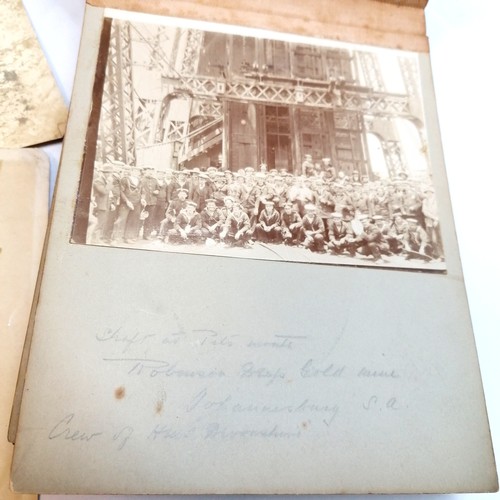 Shaft at Pits mouth
Robinson Deep, Gold mine
Johannesburg S.A.
Crew of HMS Devonshire